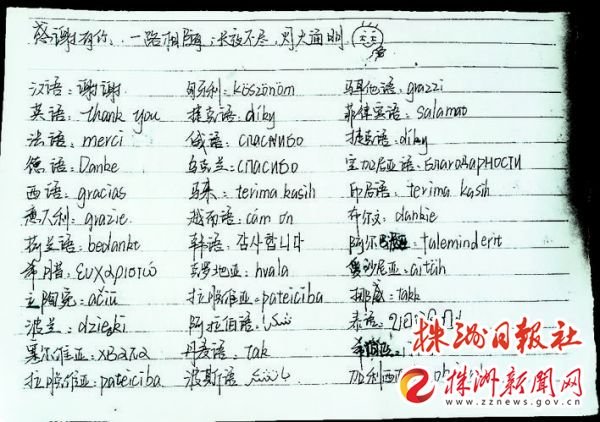 感谢有你，一路相随，长夜不尽，灯火通明
汉语：谢谢 匈牙利：köszönöm 马耳他语：grazzi
英语：thank you 捷克语：diky 菲律宾语：salamat
法语：merci 俄语：спасибо 捷克语：diky
德语：Danke 乌克兰：спасибо 保加尼亚语：благодарности
西语：gracias 马来：terima kasih 印尼语：terima kasih
意大利：grazie 越南语：cảm ơn 布尔文：dankie
荷兰语：bedankt 韩语：감사합니다 阿尔：faleminderit
希腊：ευχαριστώ 克罗地亚：hvala 爱沙尼亚：aitäh
立陶宛：ačiū 拉脱维亚：pateiciba 挪威：takk
波兰：dzięki 阿拉伯语： 泰语：
塞尔维亚：хвала 丹麦语：tak
拉脱维亚：pateiciba 波斯语： 加利西
株洲日报社
株洲新闻网
www.zznews.gov.cn